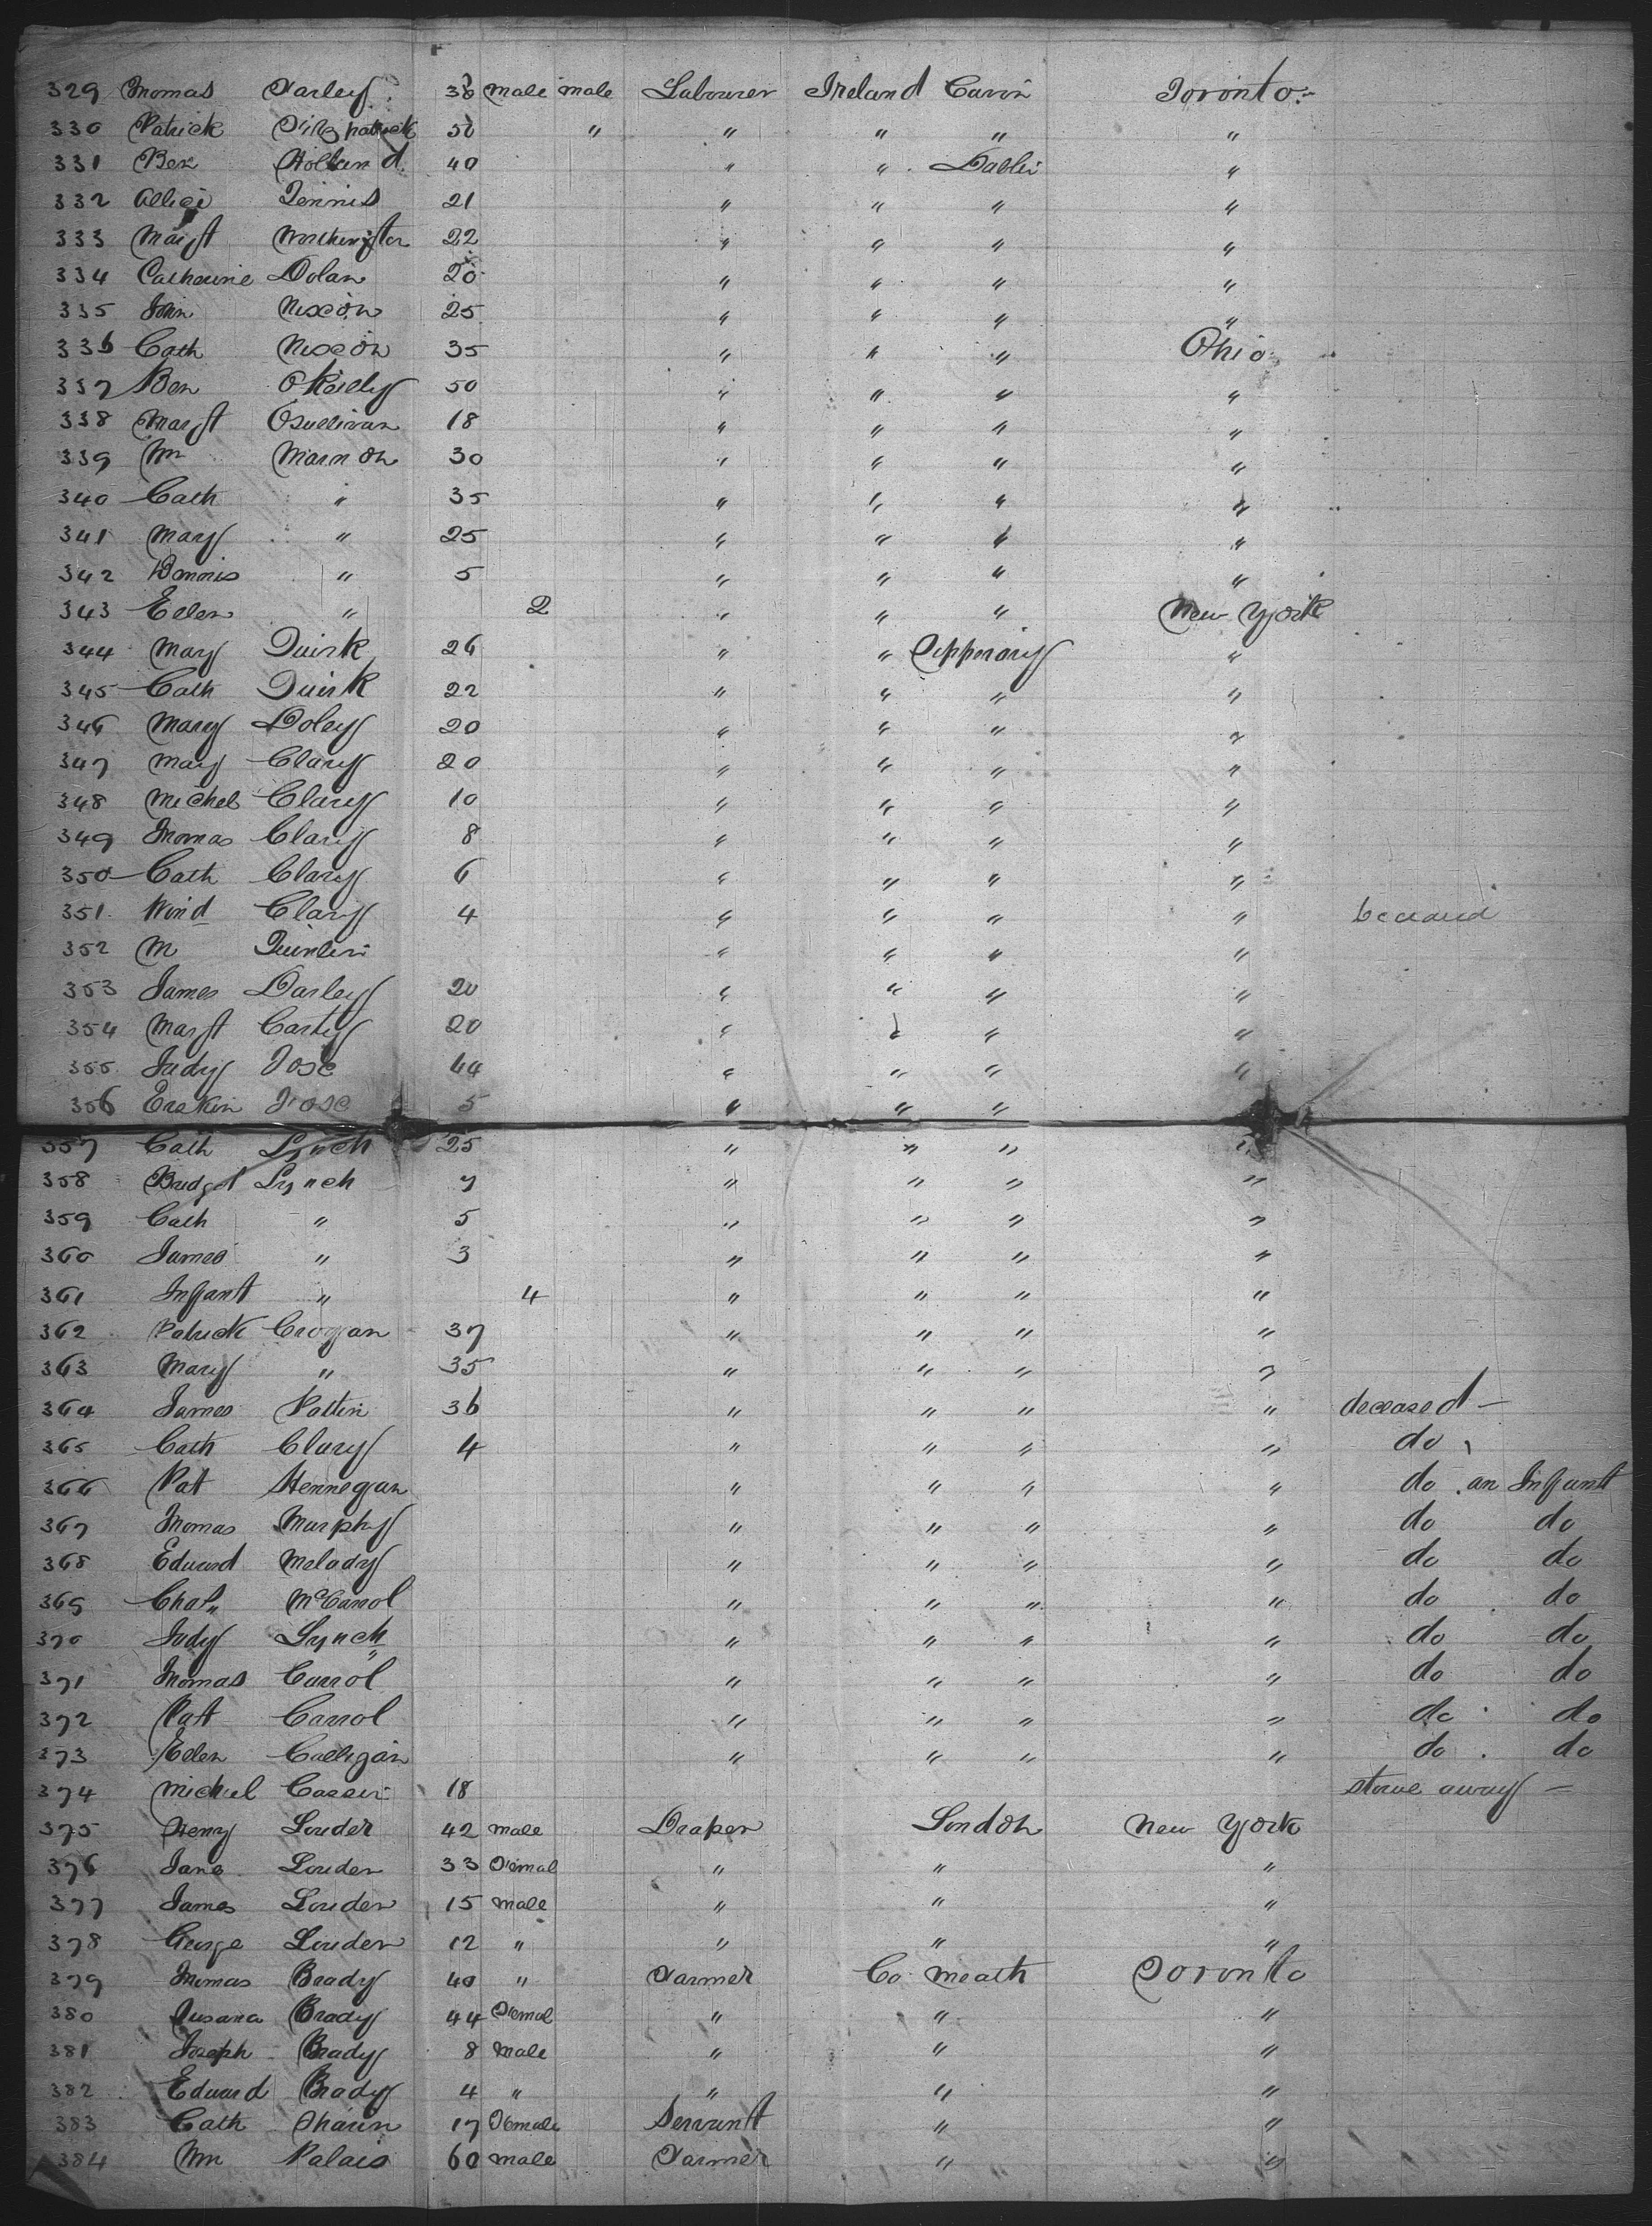 329 Thomas Farley 36 male male Labourer Ireland Cavin Toronto
330 Patrick Fitzpatrick 50 " " " " "
331 Ben Holland 40 " " Dublin "
332 Allice Dennis 21 " " " "
333 Margt 22 " " " "
334 Catherine Dolan 20 " " " "
335 John Nixeon 25 " " " "
336 Cath Nixeon 35 " " " Ohio
337 Ben O'Reilly 50 " " " "
338 Margt O'Sullivan 18 " " " "
339 Wm Marmon 30 " " " "
340 Cath " 35 " " " "
341 Mary " 25 " " " "
342 Dennis " 5 " " " "
343 Ellen " 2 " " " New York
344 Mary Quirk 26 " " Tipperary "
345 Cath Quirk 22 " " " "
346 Mary Doley 20 " " " "
347 Mary Clary 20 " " " "
348 Michel Clary 10 " " " "
349 Thomas Clary 8 " " " "
350 Cath Clary 6 " " " "
351 Wind Clary 4 " " " "
352 M Quinlin " " " "
353 James Darley 20 " " " "
354 Margt Carty 20 " " " "
355 Judy Fose 44 " " " "
356 Erskin Fose 5 " " "
357 Cath Lynch 25 " " " "
358 Bridget Lynch 7 " " " "
359 Cath " 5 " " " "
360 James " 3 " " " "
361 Infant " 4 " " " "
362 Patrick Crogan 37 " " " "
363 Mary " 35 " " " "
364 James Pattin 36 " " " " deceased
365 Cath Clary 4 " " " " do
366 Pat Hennegan " " " " do an Infant
367 Thomas Murphy " " " " do do
368 Edward Melody " " " " do do
369 Chas McCarrol " " " " do do
370 Judy Lynch " " " " do do
371 Thomas Carrol " " " " do do
372 Patt Carrol " " " " do do
373 Ellen Calligan " " " " do do
374 Michael Cassin 18 stowe away
375 Henry Louder 42 male Draper London New York
376 Jane Louden 33 Femal " " "
377 James Louden 15 male " " "
378 George Louden 12 " " " "
379 Thomas Brady 40 " Farmer Co Meath Toronto
380 Susana Brady 44 Femal " " "
381 Joseph Brady 8 male " " "
382 Edward Brady 4 " " " "
383 Cath 17 Female Servant " "
384 Wm Palais 60 male Farmer " "